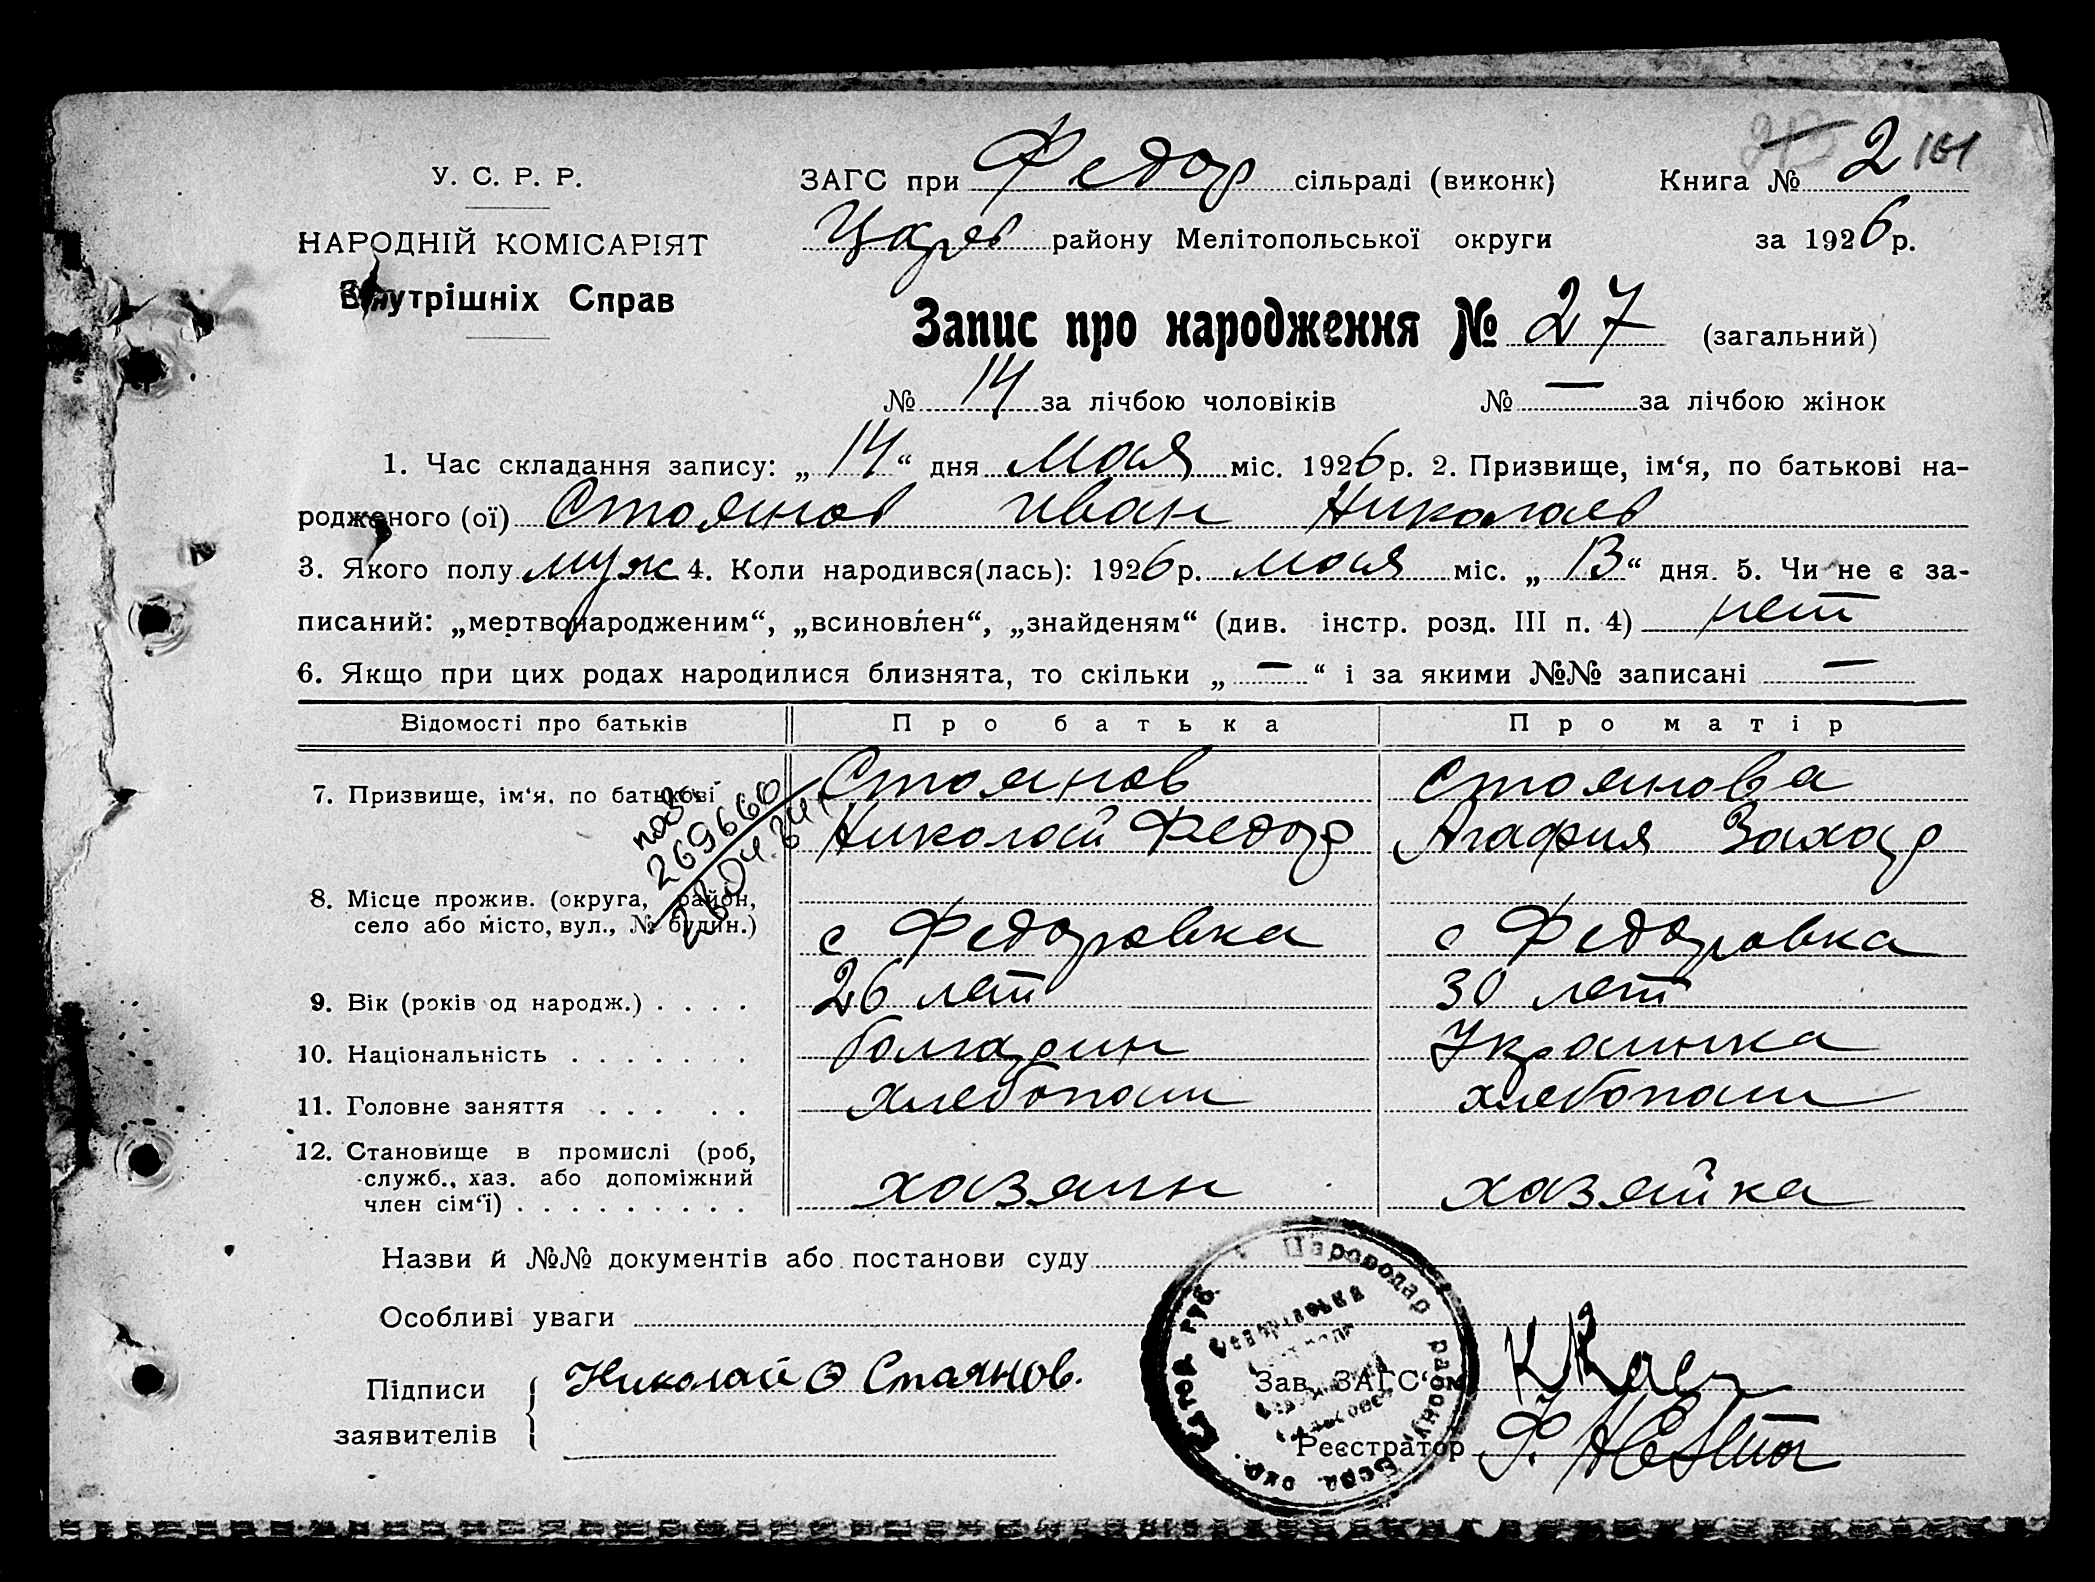 2 161
У. С. Р. Р.
НАРОДНІЙ КОМІСАРІЯТ
Внутрішніх Справ
ЗАГС при Федор сільраді (виконк) Книга № 2
Царев району Мелітопольської округи за 1926 р.
Запис про народження № 27 (загальний)
№ 14 за лічбою чоловіків № — за лічбою жінок
1. Час складання запису: „14“ дня мая міс. 1926 р. 2. Призвище, ім‘я, по батькові на-
родженого (ої) Стоянов Иван Николаев
3. Якого полу муж 4. Коли народився(лась): 1926 р. мая міс. „13“ дня. 5. Чи не є за-
писаний: „мертвонародженим“, „всиновлен“, „знайденям“ (див. інстр. розд. III п. 4) нет
6. Якщо при цих родах народилися близнята, то скільки „—“ і за якими №№ записані —
Відомості про батьків Про батька Про матір
7. Призвище, ім‘я, по батькові Стоянов Стоянова
Николай Федор Агафия Захар
269660
8. Місце прожив. (округа, район,
село або місто, вул., № будин.) с Федоровка с Федоровка
9. Вік (років од народж.) . . . . 26 лет 30 лет
10. Національність . . . . . . . болгарин Украинка
11. Головне заняття . . . . . хлебопаш хлебопаш
12. Становище в промислі (роб,
служб., хаз. або допоміжний
член сім‘ї) . . . . . . . . . хазяин хазяйка
Назви й №№ документів або постанови суду
Особливі уваги
Підписи
заявителів
Николай Ф Стаянов.
Зав. ЗАГС‘у
Реєстратор